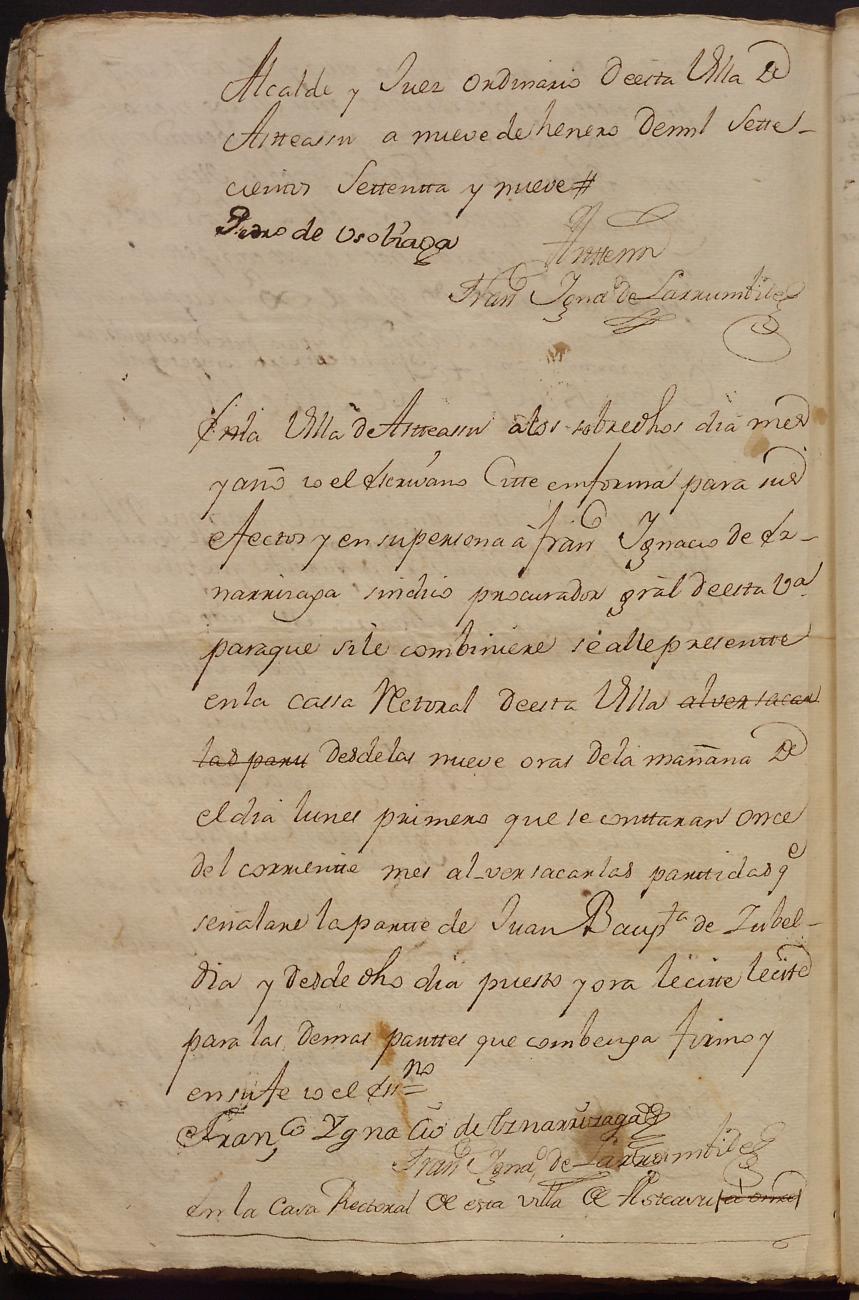 Alcalde y Juez ordinario deesta Villa de
Astteasu a nueve de henero demil Sette-
cientos Settentta y nueve#
Pedro de Usobiaga
Antte mi
Fran.co Igna.o de Larrumbide
En la Villa de Astteasu a los sobredhos dia mes
y año io el Escrivano Citte en forma para sus
efectos y en su persona a fran.co Ignacio de Ez-
narrizaga sindico procurador gral deesta V.a
paraque si le combiniere se alle presentte
en la cassa Rectoral deesta Villa al ver sacar
las partt desdelas nueve oras dela mañana de
el dia lunes primero que se conttaran once
del corriente mes al ver sacar las parttidas q.e
señalare la partte de Juan Bap.ta de Zubel-
dia y desde dho dia puesto y ora le citte le citte
para las demas parttes que combenga firmo y
en su fe io el Ess.no=
Fran.co Ygnacio de Eznarrizaga
Fran.co Igna.o de Larrumbide
En la Casa Rectoral de esta villa de Asteasu